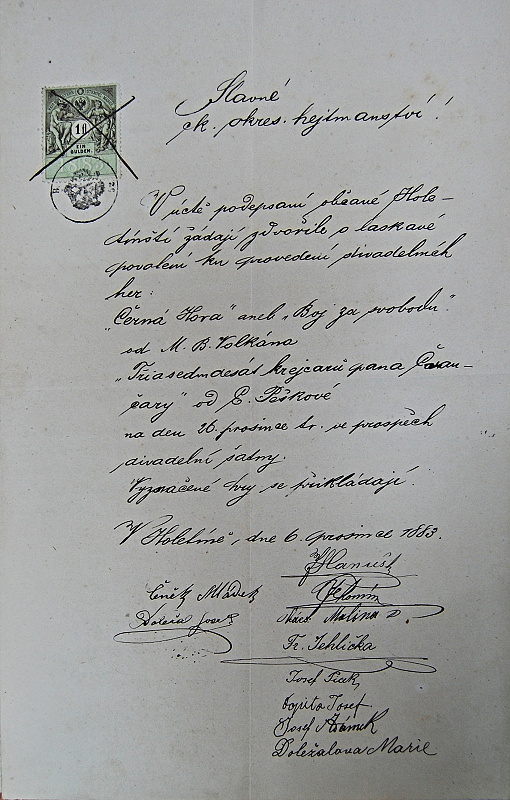 Slavné
ck. okres. hejtmanství!
10
EIN
GULDEN.
V úctě podepsaní občané Hole-
tínští žádají zdvořile o laskavé
povolení ku provedení divadelních
her:
„Černá Hora" aneb „Boj za svobodu"
od M. B. Volkána
„Triasedmdesát krejcarů pana
čary" od E. Peškové
na den 26. prosince tr. ve prospěch
divadelní šatny.
Vyznačené hry se přikládají.
V Holetíně, dne 6. prosince 1883.
Hanušt
Čeněk Mládek
Tomín
Doleža Josef
Malina
Fr. Jehlička
Josef
Josef
Josef Adámek
Doležalova Marie